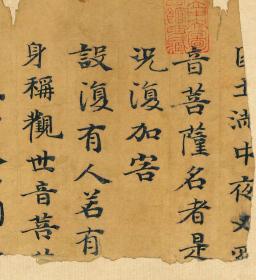 土滿中夜叉
音菩薩名者是
況復加害
設復有人若有
身稱觀世音菩